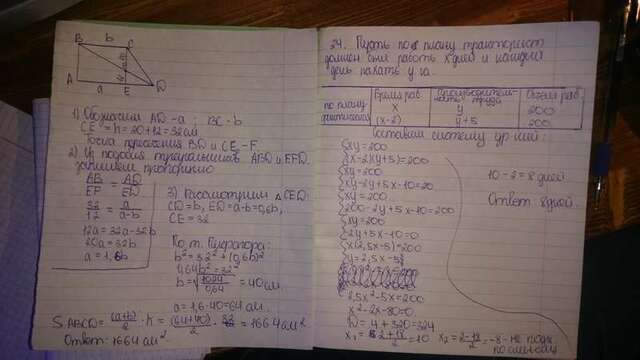 B b C
A a E D
1) Обозначим AD - a ; BC - b
CE = h = 20 + 12 = 32 см
Точка пересечения BD и CE - F
2) Из подобия треугольников ABD и EFD
AB/EF = AD/ED
32/12 = a/(a-b)
12a = 32a - 32b
20a = 32b
a = 1,6b
3) Рассмотрим △CED:
CD = b, ED = a-b = 0,6b,
CE = 32
По т. Пифагора:
b² = 32² + (0,6b)²
0,64b² = 32²
b = √(1024/0,64) = 40 см.
a = 1,6·40 = 64 см.
S ABCD = (a+b)/2 · h = (64+40)/2 · 32 = 1664 см²
Ответ: 1664 см²
24. Пусть по плану тракторист
должен был работ x дней и каждый
день пахать y га.
Время раб Производительность труда Объем раб.
по плану x y 200
фактически (x-2) y+5 200
Составим систему ур-ний:
{xy = 200
{(x-2)(y+5) = 200
{xy = 200
{xy - 2y + 5x - 10 = 20
{xy = 200
{200 - 2y + 5x - 10 = 200
{xy = 200
{2y + 5x - 10 = 0
{x(2,5x-5) = 200
{y = 2,5x - 5
2,5x² - 5x = 200
x² - 2x - 80 = 0
= 4 + 320 = 324
= 10 x₂ = (2-18)/2 = -8 - не
10 - 2 = 8 дней
Ответ: 8 дней.